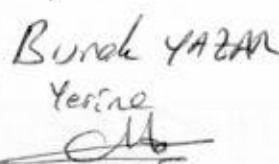 Burak YAZAR
Yerine